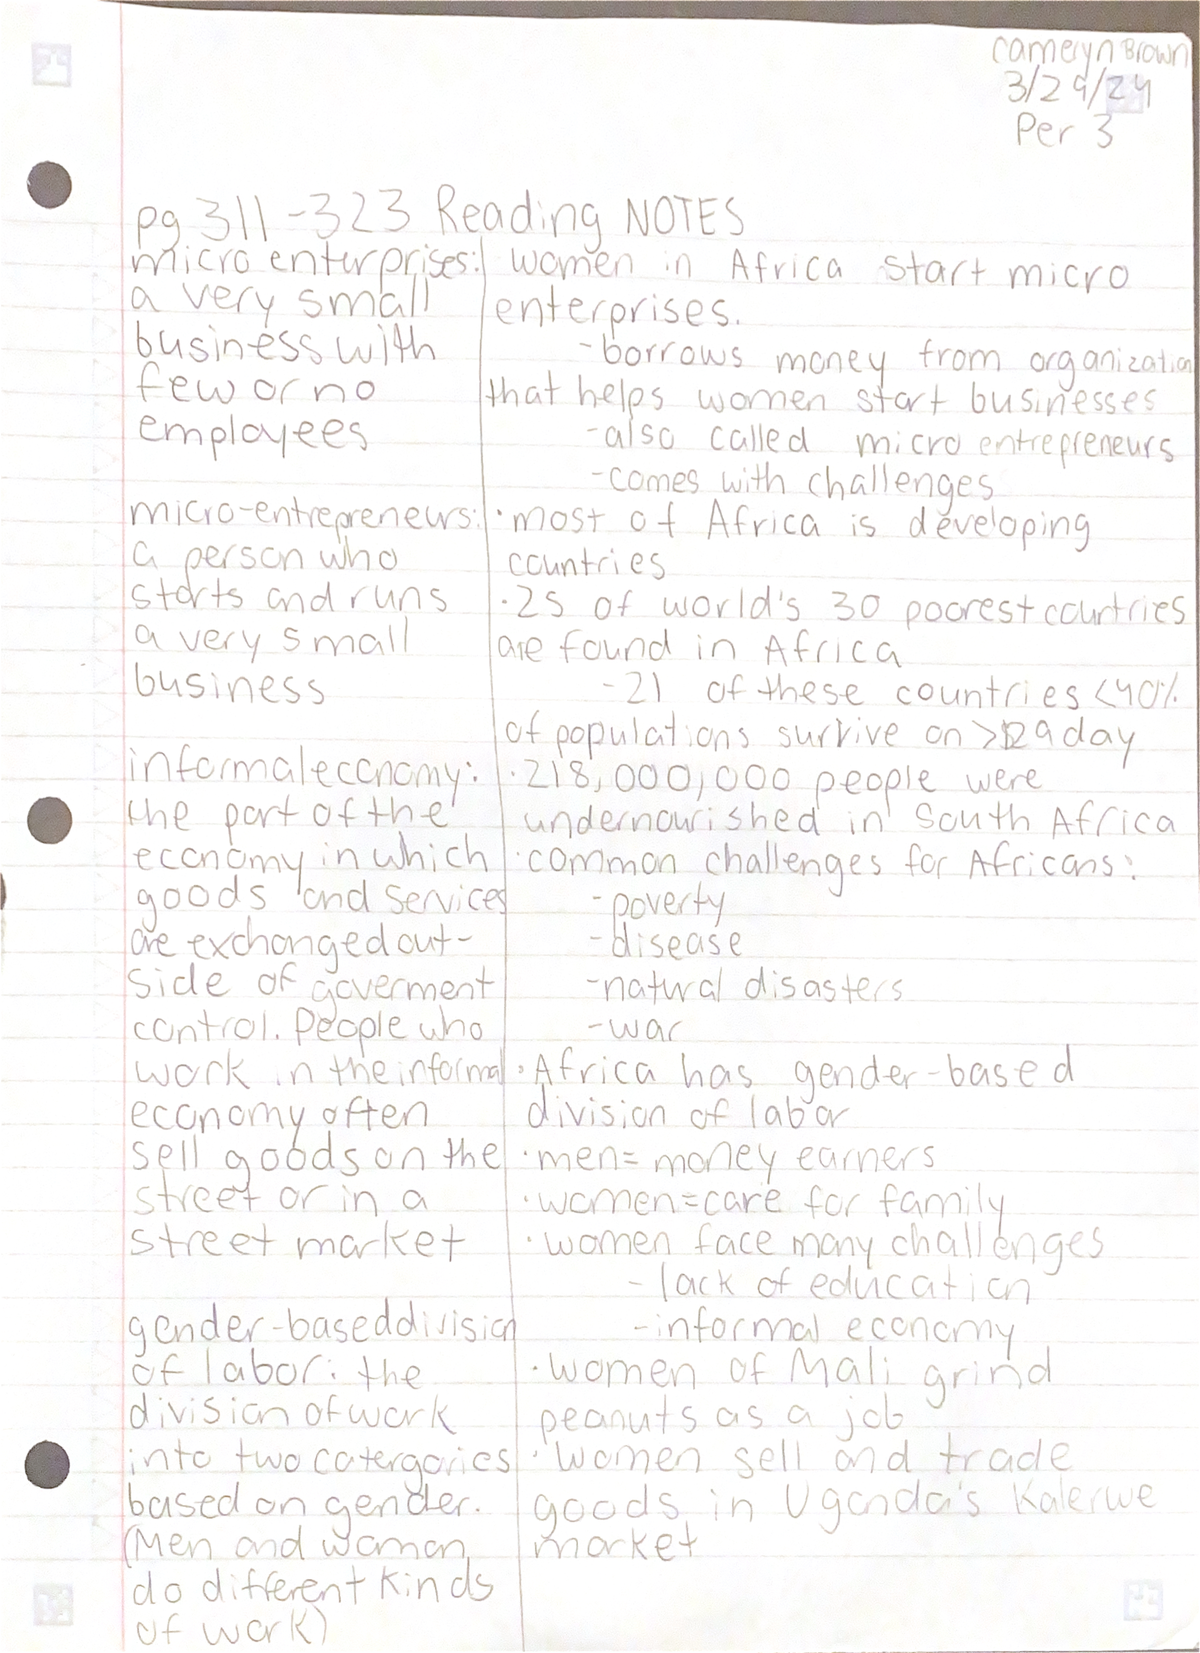 Cameryn Brown
3/29/24
Per 3
pg 311-323 Reading NOTES
micro enterprises:
a very small
business with
few or no
employees
micro-entrepreneurs:
a person who
starts and runs
a very small
business
informal economy:
the part of the
economy in which
goods and services
are exchanged out-
side of goverment
control. People who
work in the informal
economy often
sell goods on the
street or in a
street market
gender-based division
of labor: the
division of work
into two catergories
based on gender.
(Men and woman
do different kinds
of work)
women in Africa start micro
enterprises.
-borrows money from organization
that helps women start businesses
-also called micro entrepreneurs
-comes with challenges
·most of Africa is developing
countries
·25 of world's 30 poorest countries
are found in Africa
-21 of these countries <40%
of populations survive on >$2 a day
·218,000,000 people were
undernourished in South Africa
·common challenges for Africans:
-poverty
-disease
-natural disasters
-war
·Africa has gender-based
division of labor
·men= money earners
·women=care for family
·women face many challenges
-lack of education
-informal economy
·women of Mali grind
peanuts as a job
·women sell and trade
goods in Uganda's Kalerwe
market